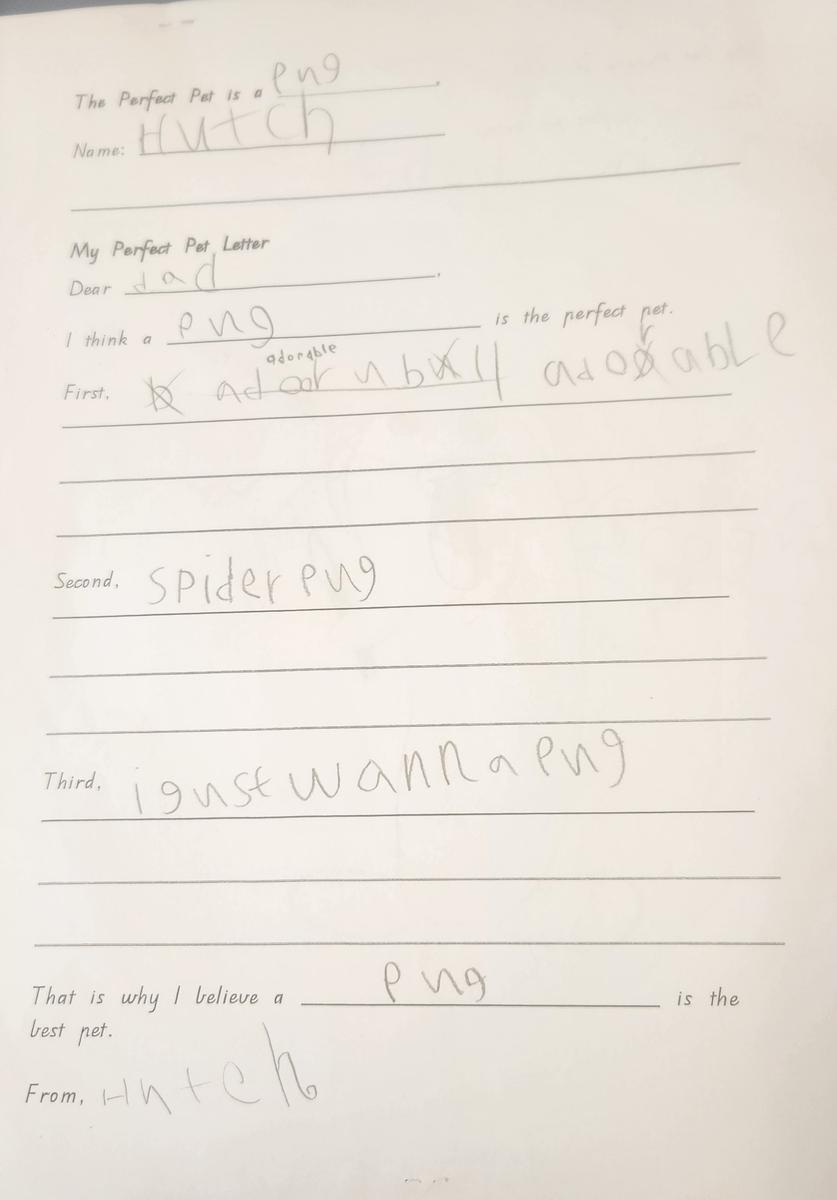 The Perfect Pet is a png.
Name: Hutch
My Perfect Pet Letter
Dear dad,
I think a png is the perfect pet.
adorable
First, adorable
Second, spider png
Third, i gust wanna png
That is why I believe a png is the
best pet.
From, Hutch